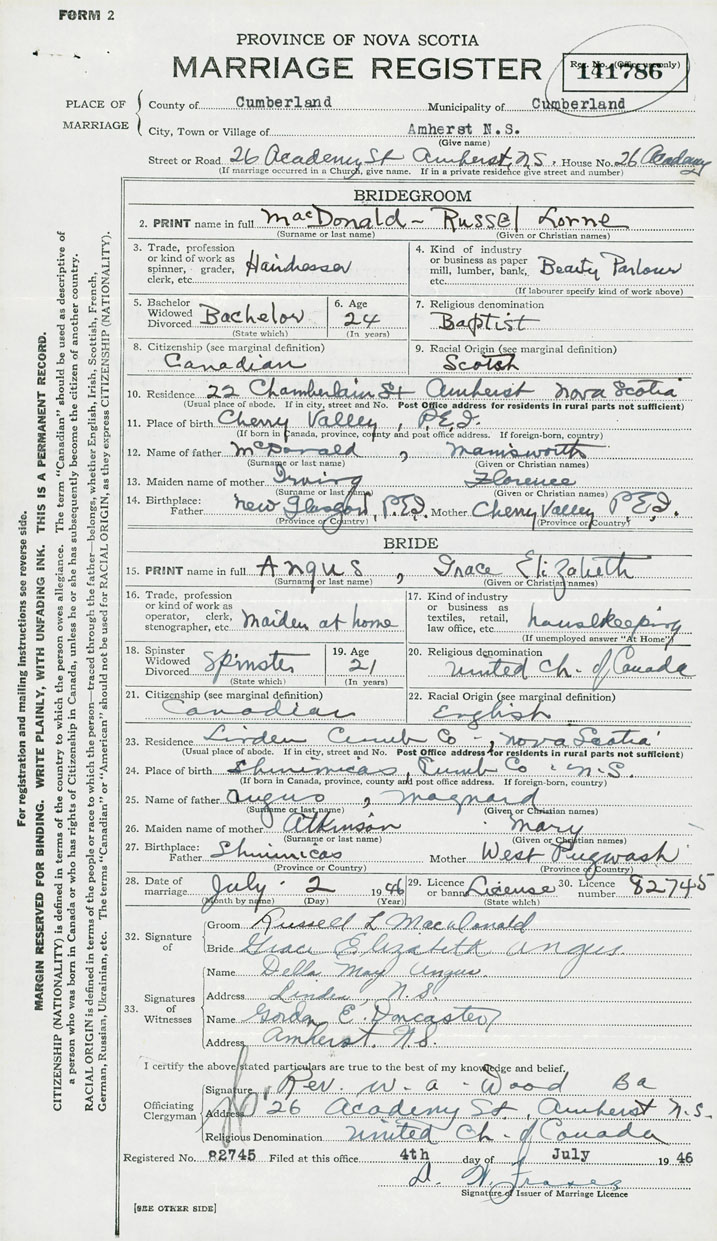 FORM 2
PROVINCE OF NOVA SCOTIA
MARRIAGE REGISTER
Reg. No. (Office use only)
141786
PLACE OF MARRIAGE
County of Cumberland Municipality of Cumberland
City, Town or Village of Amherst N.S.
(Give name)
Street or Road 26 Academy St Amherst, N.S. House No. 26 Academy
(If marriage occurred in a Church, give name. If in a private residence give street and number)
BRIDEGROOM
2. PRINT name in full MacDonald - Russel Lorne
(Surname or last name) (Given or Christian names)
3. Trade, profession or kind of work as spinner, grader, clerk, etc. Hairdresser
4. Kind of industry or business as paper mill, lumber, bank, etc. Beauty Parlour
(If labourer specify kind of work above)
5. Bachelor Widowed Divorced Bachelor
(State which)
6. Age 24
(In years)
7. Religious denomination
Baptist
8. Citizenship (see marginal definition)
Canadian
9. Racial Origin (see marginal definition)
Scotch
10. Residence 22 Chamberlain St Amherst Nova Scotia
(Usual place of abode. If in city, street and No. Post Office address for residents in rural parts not sufficient)
11. Place of birth Cherry Valley, P.E.I.
(If born in Canada, province, county and post office address. If foreign-born, country)
12. Name of father McDonald,
(Surname or last name) (Given or Christian names)
13. Maiden name of mother Irving Florence
(Surname or last name) (Given or Christian names)
14. Birthplace: Father New Glasgow, P.E.I. Mother Cherry Valley P.E.I.
(Province or Country) (Province or Country)
BRIDE
15. PRINT name in full Angus, Grace Elizabeth
(Surname or last name) (Given or Christian names)
16. Trade, profession or kind of work as operator, clerk, stenographer, etc. Maiden at home
17. Kind of industry or business as textiles, retail, law office, etc. houselkeeping
(If unemployed answer "At Home")
18. Spinster Widowed Divorced Spinster
(State which)
19. Age 21
(In years)
20. Religious denomination
United Ch. of Canada
21. Citizenship (see marginal definition)
Canadian
22. Racial Origin (see marginal definition)
English
23. Residence Linden Cumb Co -, Nova Scotia
(Usual place of abode. If in city, street and No. Post Office address for residents in rural parts not sufficient)
24. Place of birth Shinimicas, Cumb Co. N.S.
(If born in Canada, province, county and post office address. If foreign-born, country)
25. Name of father Angus, Maynard
(Surname or last name) (Given or Christian names)
26. Maiden name of mother Atkinson Mary
(Surname or last name) (Given or Christian names)
27. Birthplace: Father Shinimicas Mother West Pugwash
(Province or Country) (Province or Country)
28. Date of marriage July 2 1946
(Month by name) (Day) (Year)
29. Licence or banns License
(State which)
30. Licence number 82745
32. Signature of
Groom Russell L MacDonald
Bride Grace Elizabeth Angus
33. Signatures of Witnesses
Name Della May Angus
Address Linden, N.S.
Name Gordon E. Doncaster
Address Amherst, N.S.
I certify the above stated particulars are true to the best of my knowledge and belief.
Officiating Clergyman
Signature Rev. W. A. Wood Ba
Address 26 Academy St., Amherst N.S.
Religious Denomination United Ch. of Canada
Registered No. 82745 Filed at this office 4th day of July 1946
D. W. Fraser
Signature of Issuer of Marriage Licence
[SEE OTHER SIDE]
For registration and mailing instructions see reverse side.
MARGIN RESERVED FOR BINDING. WRITE PLAINLY, WITH UNFADING INK. THIS IS A PERMANENT RECORD.
CITIZENSHIP (NATIONALITY) is defined in terms of the country to which the person owes allegiance. The term "Canadian" should be used as descriptive of
a person who was born in Canada or who has rights of Citizenship in Canada, unless he or she has subsequently become the citizen of another country.
RACIAL ORIGIN is defined in terms of the people or race to which the person—traced through the father—belongs, whether English, Irish, Scottish, French,
German, Russian, Ukrainian, etc. The terms "Canadian" or "American" should not be used for RACIAL ORIGIN, as they express CITIZENSHIP (NATIONALITY).